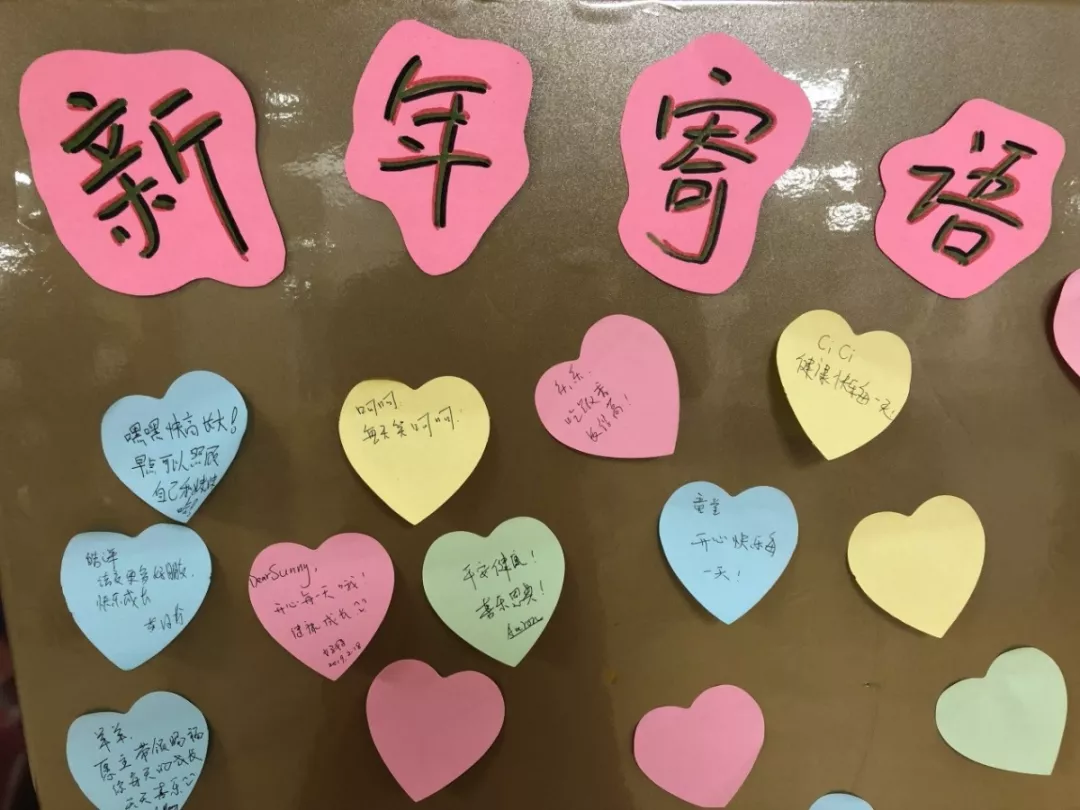 新年寄语
嘿嘿快高长大!
早点可以照顾
自己和妹妹
呵呵
每天笑呵呵.
乐乐.
吃饭香
长得高!
CiCi
健康快乐每一天!
皓洋
结交更多好朋友.
快乐成长
Dear Sunny,
开心每一天哦!
健康成长
2019.2.18
平安健康!
喜乐恩典!
童童
开心快乐每
一天!
羊羊.
愿主带领赐福
你每天的成长
天天喜乐